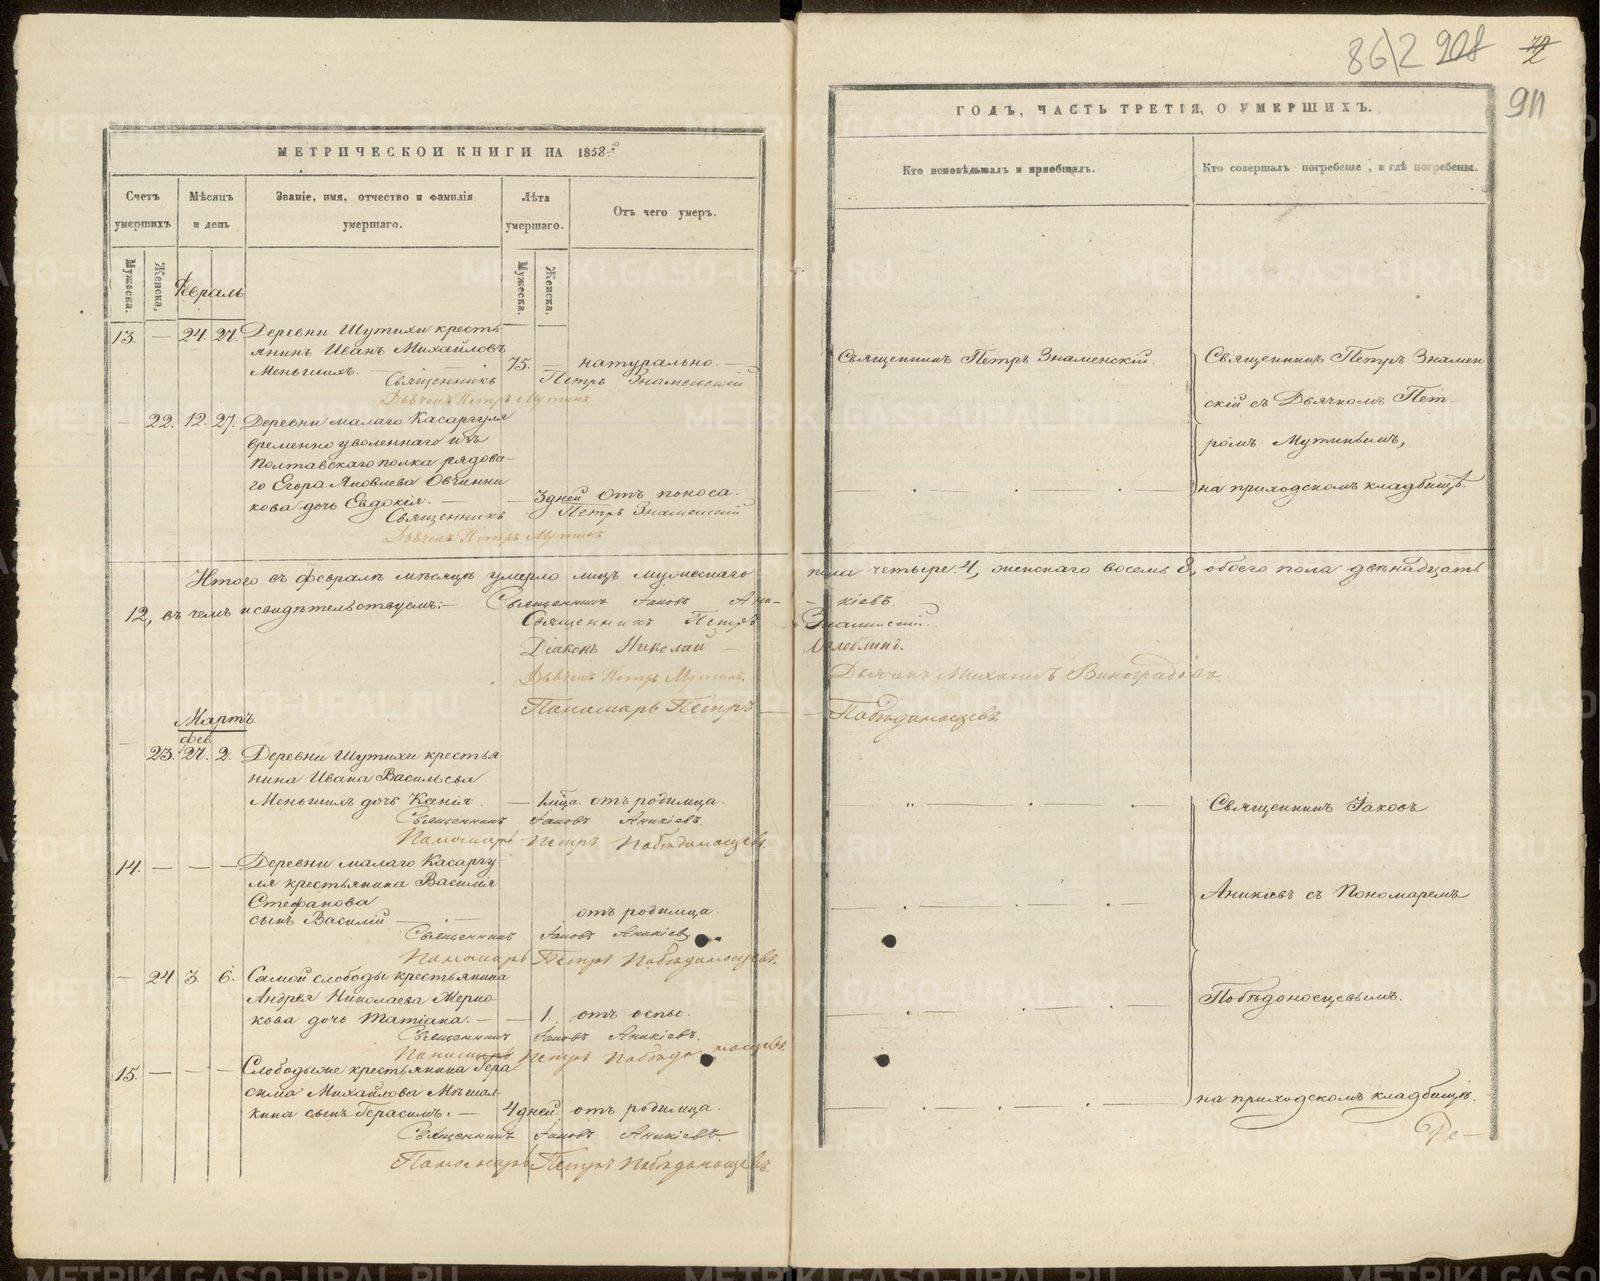 МЕТРИЧЕСКОЙ КНИГИ НА 1858й
Счетъ умершихъ
Мѣсяцъ и день
Званіе, имя, отчество и фамилія умершаго.
Лѣта умершаго.
Отъ чего умеръ.
Мужеска.
Женска,
Мужеска.
Женска.
Февраль
13. — 24. 27. Деревни Шутихи кресть
янинъ Иванъ Михайловъ
Меньшихъ. 75. — натурально. —
Священникъ Петръ Знаменскій
Дьячекъ Петръ Мутинъ
— 22. 12. 27. Деревни малаго Касаргуля
временно уволеннаго изъ
Полтавскаго полка рядова-
го Егора Яковлева Овчинни
кова дочь Евдокія. — — 3 дней отъ поноса.
Священникъ Петръ Знаменскій
Дьячекъ Петръ Мутинъ
Итого въ февралѣ мѣсяцѣ умерло лицъ мужескаго
12, въ чемъ и свидѣтельствуемъ:— Священникъ Іаковъ Ани-
Священникъ Петръ
Діаконъ Николай —
Дьячекъ Петръ Мутинъ.
Пономарь Петръ —
Мартъ.
фев.
23. 27. 2. Деревни Шутихи крестья
нина Ивана Васильева
Меньшихъ дочь Ксенія. — 1 мца. отъ родимца.
Священникъ Іаковъ Аникіевъ.
Пономарь Петръ Побѣдоносцевъ.
14. — — — Деревни малаго Касаргу-
ля крестьянина Василія
Стефанова
сынъ Василій — отъ родимца.
Священникъ Іаковъ Аникіевъ
Пономарь Петръ Побѣдоносцевъ.
— 24 3. 6. Самой слободы крестьянина
Андрея Николаева
кова дочь Татіана. — — 1. отъ оспы.
Священникъ Іаковъ Аникіевъ.
Пономарь Петръ Побѣдоносцевъ.
15. — — — Слободы же крестьянина Гера
сима Михайлова Мѣшал-
кина сынъ Герасимъ. — 4 дней. отъ родимца.
Священникъ Іаковъ Аникіевъ.
Пономарь Петръ Побѣдоносцевъ.
86\2 908 72
911
ГОДЪ, ЧАСТЬ ТРЕТІЯ, О УМЕРШИХЪ.
Кто исповѣдывалъ и пріобщалъ.
Кто совершалъ погребеніе, и гдѣ погребены.
Священникъ Петръ Знаменскій.
Священникъ Петръ Знамен
скій съ Дьячкомъ Пет-
ромъ Мутинымъ,
на приходскомъ кладбищѣ.
пола четыре. 4, женскаго восемь 8, обоего пола двѣнадцать
— кіевъ.
Знаменскій.
Оглоблинъ.
Дьячекъ Михаилъ Виноградовъ.
— Побѣдоносцевъ.
Священникъ Іаковъ
Аникіевъ съ Пономаремъ
Побѣдоносцевымъ.
на приходскомъ кладбищѣ.
METRIKI.GASO-URAL.RU